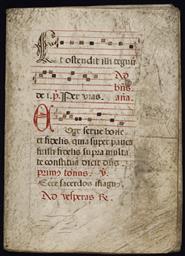 Et ostendit illi regnũ
Ad
bñs.
de i. p̃. Per vias. aña.
Euge serve bone
et fidelis, quia super pauca
fuisti fidelis supra multa
te constituã dicit dñs.
primi tonus. ℣.
Ecce sacerdos magn
Ad vesperas